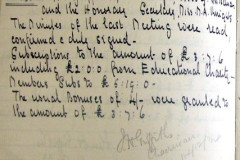 and the Honorary Secretary Miss M.A. 
The Minutes of the last Meeting were read,
confirmed & duly signed.
Subscriptions to the amount of £5:7:6
including £2:0:0 from Educational Charity.
Members Subs to £5:19:0
The usual Bonuses of 4/- were granted to
the amount of £3:7:6